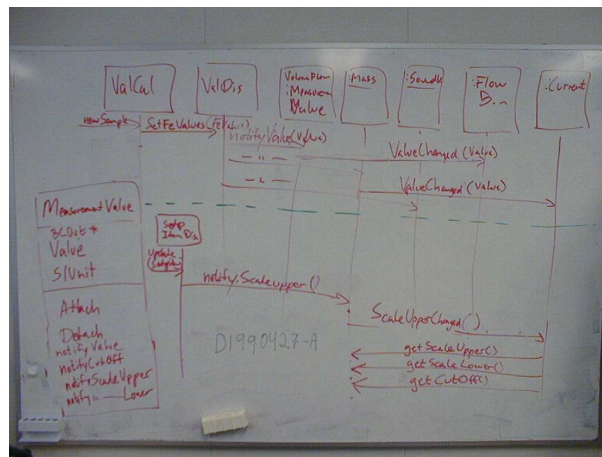 ValCal
ValDis
VolumeFlow
:Measurem
Value
:Mass
:Flow
B...
:Current
newSample
SetFeValues(FeValue)
notifyValue(Value)
— " —
ValueChanged(Value)
— " —
ValueChanged(Value)
MeasurementValue
Value
SIUnit
Attach
Detach
notifyValue
notifyCutOff
notifyScaleUpper
notify — " — Lower
Setup
Item Dis
Update
notify.ScaleUpper()
ScaleUpperChanged()
D1990427-A
getScaleUpper()
getScaleLower()
getCutOff()